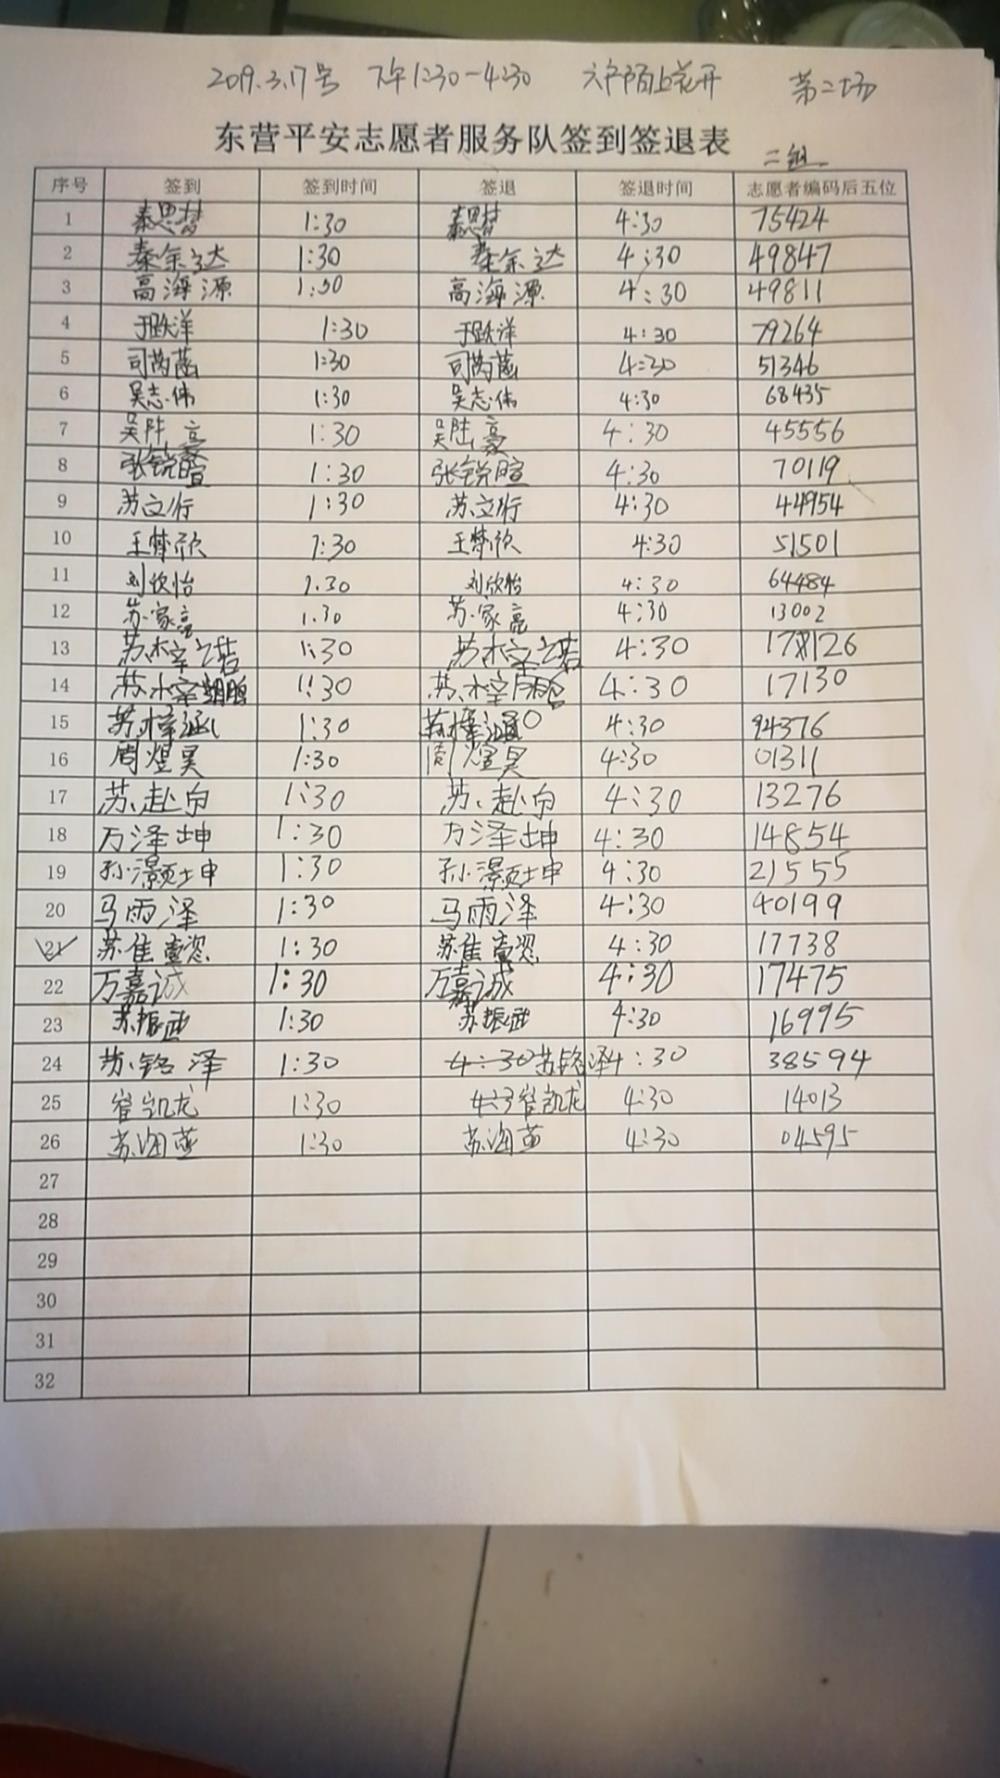 2019.3.17号 下午1:30-4:30 六户陌上花开 第二场
东营平安志愿者服务队签到签退表 二组
序号 签到 签到时间 签退 签退时间 志愿者编码后五位
1 秦思梦 1:30 秦思梦 4:30 75424
2 秦余达 1:30 秦余达 4:30 49847
3 高海源 1:30 高海源 4:30 49811
4 于跃洋 1:30 于跃洋 4:30 79264
5 司芮菡 1:30 司芮菡 4:30 51346
6 吴志伟 1:30 吴志伟 4:30 68435
7 吴陆豪 1:30 吴陆豪 4:30 45556
8 张锐暄 1:30 张锐暄 4:30 70119
9 苏文行 1:30 苏文行 4:30 44954
10 王梦欣 1:30 王梦欣 4:30 51501
11 刘欣怡 1.30 刘欣怡 4:30 64484
12 苏家亮 1.30 苏家亮 4:30 13002
13 苏梓若 1:30 苏梓若 4:30
14 1:30 4:30 17130
15 苏梓涵 1:30 苏梓涵 4:30 94376
16 周煜昊 1:30 周煜昊 4:30 01311
17 苏赴白 1:30 苏赴白 4:30 13276
18 万泽坤 1:30 万泽坤 4:30 14854
19 孙灏坤 1:30 孙灏坤 4:30 21555
20 马雨泽 1:30 马雨泽 4:30 40199
21 苏佳 1:30 苏佳 4:30 17738
22 万嘉诚 1:30 万嘉诚 4:30 17475
23 苏振武 1:30 苏振武 4:30 16995
24 苏铭泽 1:30 4:30 苏铭泽 4:30 38594
25 崔凯龙 1:30 崔凯龙 4:30 14013
26 苏海燕 1:30 苏海燕 4:30 04595
27
28
29
30
31
32